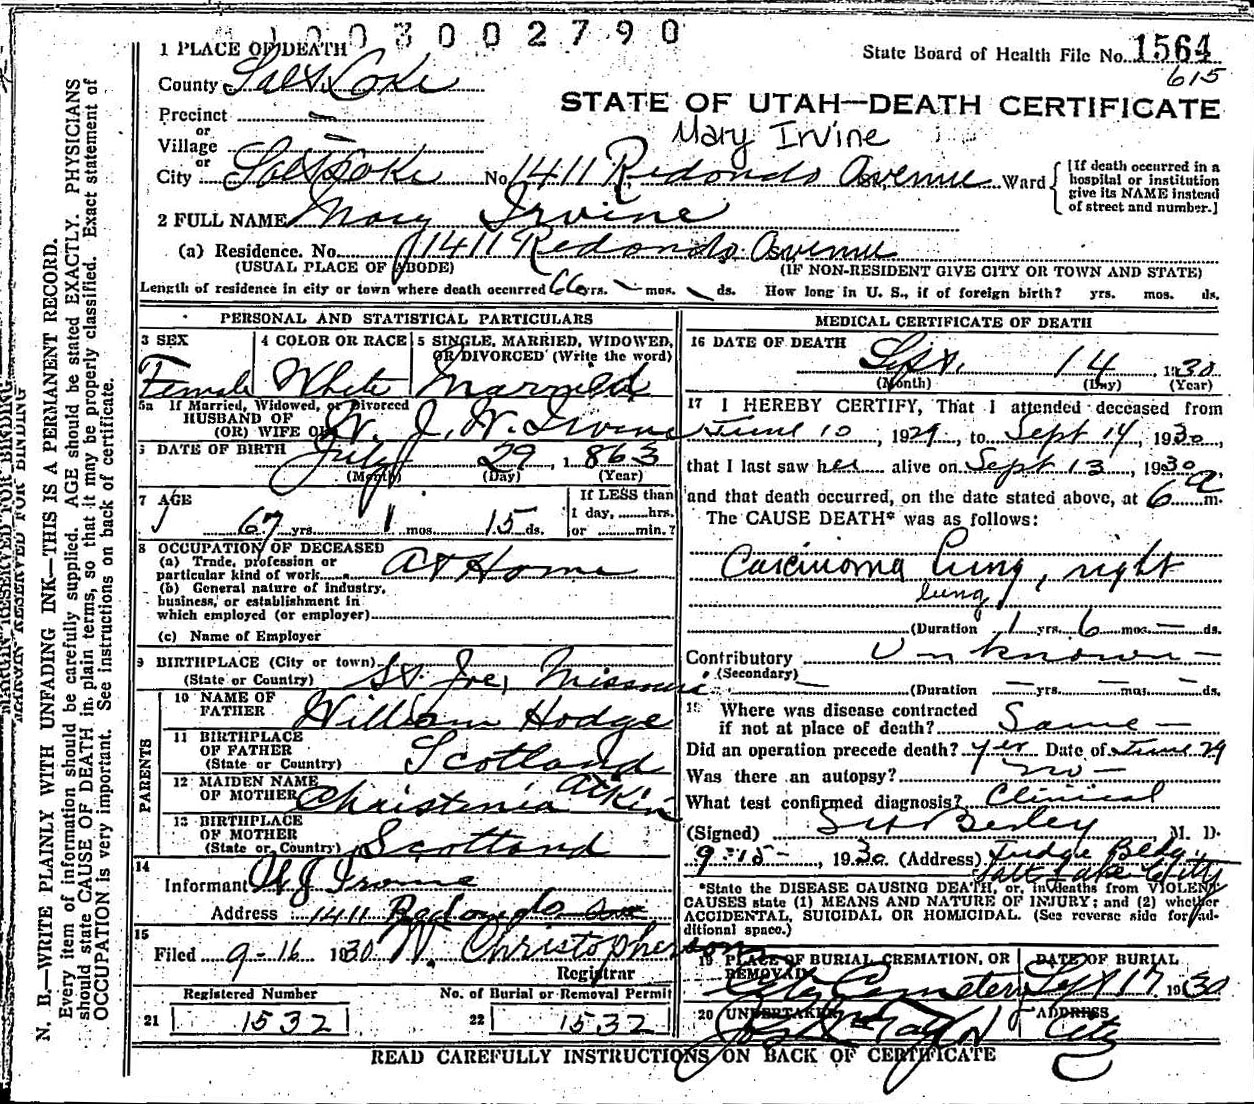 1003002790
1 PLACE OF DEATH
State Board of Health File No. 1564
615
County Salt Lake
STATE OF UTAH—DEATH CERTIFICATE
Precinct
or
Village
Mary Irvine
or
City Salt Lake No. 1411 Redondo Avenue Ward
[If death occurred in a
hospital or institution
give its NAME instead
of street and number.]
2 FULL NAME Mary Irvine
(a) Residence. No. 1411 Redondo Avenue
(USUAL PLACE OF ABODE) (IF NON-RESIDENT GIVE CITY OR TOWN AND STATE)
Length of residence in city or town where death occurred 66 yrs. — mos. — ds. How long in U. S., if of foreign birth? yrs. mos. ds.
PERSONAL AND STATISTICAL PARTICULARS
3 SEX
Female
4 COLOR OR RACE
White
5 SINGLE, MARRIED, WIDOWED,
OR DIVORCED (Write the word)
Married
5a If Married, Widowed, or Divorced
HUSBAND OF
(OR) WIFE OF W. J. W. Irvine
6 DATE OF BIRTH July 29, 1863
(Month) (Day) (Year)
7 AGE
67 yrs. 1 mos. 15 ds.
If LESS than
1 day, ......hrs.
or ......min.?
8 OCCUPATION OF DECEASED
(a) Trade, profession or
particular kind of work At Home
(b) General nature of industry,
business, or establishment in
which employed (or employer)
(c) Name of Employer
9 BIRTHPLACE (City or town)
(State or Country) St. Joe, Missouri
PARENTS
10 NAME OF
FATHER William Hodge
11 BIRTHPLACE
OF FATHER
(State or Country) Scotland
12 MAIDEN NAME
OF MOTHER Christinia Atkin
13 BIRTHPLACE
OF MOTHER
(State or Country) Scotland
14
Informant W J Irvine
Address 1411 Redondo Ave
15
Filed 9-16 1930 W. Christopherson
Registrar
Registered Number
21 1532
No. of Burial or Removal Permit
22 1532
MEDICAL CERTIFICATE OF DEATH
16 DATE OF DEATH
Sept. 14 1930
(Month) (Day) (Year)
17 I HEREBY CERTIFY, That I attended deceased from
June 10, 1929, to Sept 14, 1930,
that I last saw her alive on Sept 13, 1930,
and that death occurred, on the date stated above, at 6 a m.
The CAUSE DEATH* was as follows:
Carcinoma lung, right
lung
(Duration 1 yrs. 6 mos. — ds.
Contributory Unknown —
(Secondary)
— (Duration — yrs. — mos. — ds.
18 Where was disease contracted
if not at place of death? Same —
Did an operation precede death? yes Date of June 29
Was there an autopsy? no —
What test confirmed diagnosis? Clinical
(Signed) M. D.
9-15-, 1930 (Address) Judge Bldg.
Salt Lake City
*State the DISEASE CAUSING DEATH, or, in deaths from VIOLENT
CAUSES state (1) MEANS AND NATURE OF INJURY; and (2) whether
ACCIDENTAL, SUICIDAL OR HOMICIDAL. (See reverse side for ad-
ditional space.)
19 PLACE OF BURIAL, CREMATION, OR
REMOVAL
City Cemetery
DATE OF BURIAL
Sept 17 1930
20 UNDERTAKER
Taylor
ADDRESS
City
READ CAREFULLY INSTRUCTIONS ON BACK OF CERTIFICATE
MARGIN RESERVED FOR BINDING
N. B.—WRITE PLAINLY WITH UNFADING INK—THIS IS A PERMANENT RECORD.
Every item of information should be carefully supplied. AGE should be stated EXACTLY. PHYSICIANS
should state CAUSE OF DEATH in plain terms, so that it may be properly classified. Exact statement of
OCCUPATION is very important. See instructions on back of certificate.